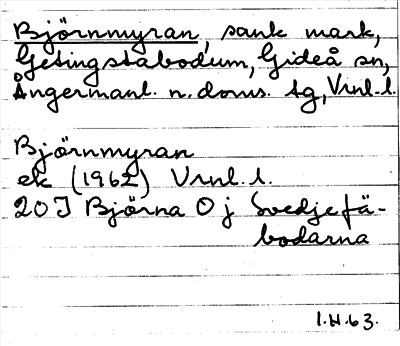 Björnmyran, sank mark,
Getingstabodum, Gideå sn,
Ångermanl. n. doms. tg, Vrnl. l.
Björnmyran
ek (1962) Vrnl. l.
20J Björna O j Svedjefä-
bodarna
I.H.63.